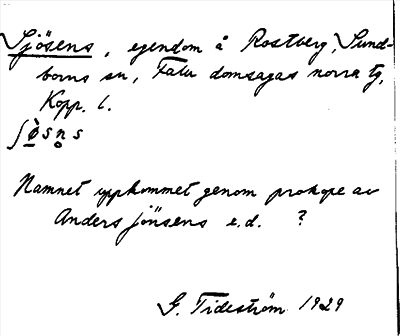 Sjösens, egendom å Rostberg, Sund-
borns sn, Falu domsagas norra tg,
Kopp. l.
ʃø̀sn̥s
Namnet uppkommet genom prokope av
Anders Jönsens e.d. ?
G. Tideström 1929